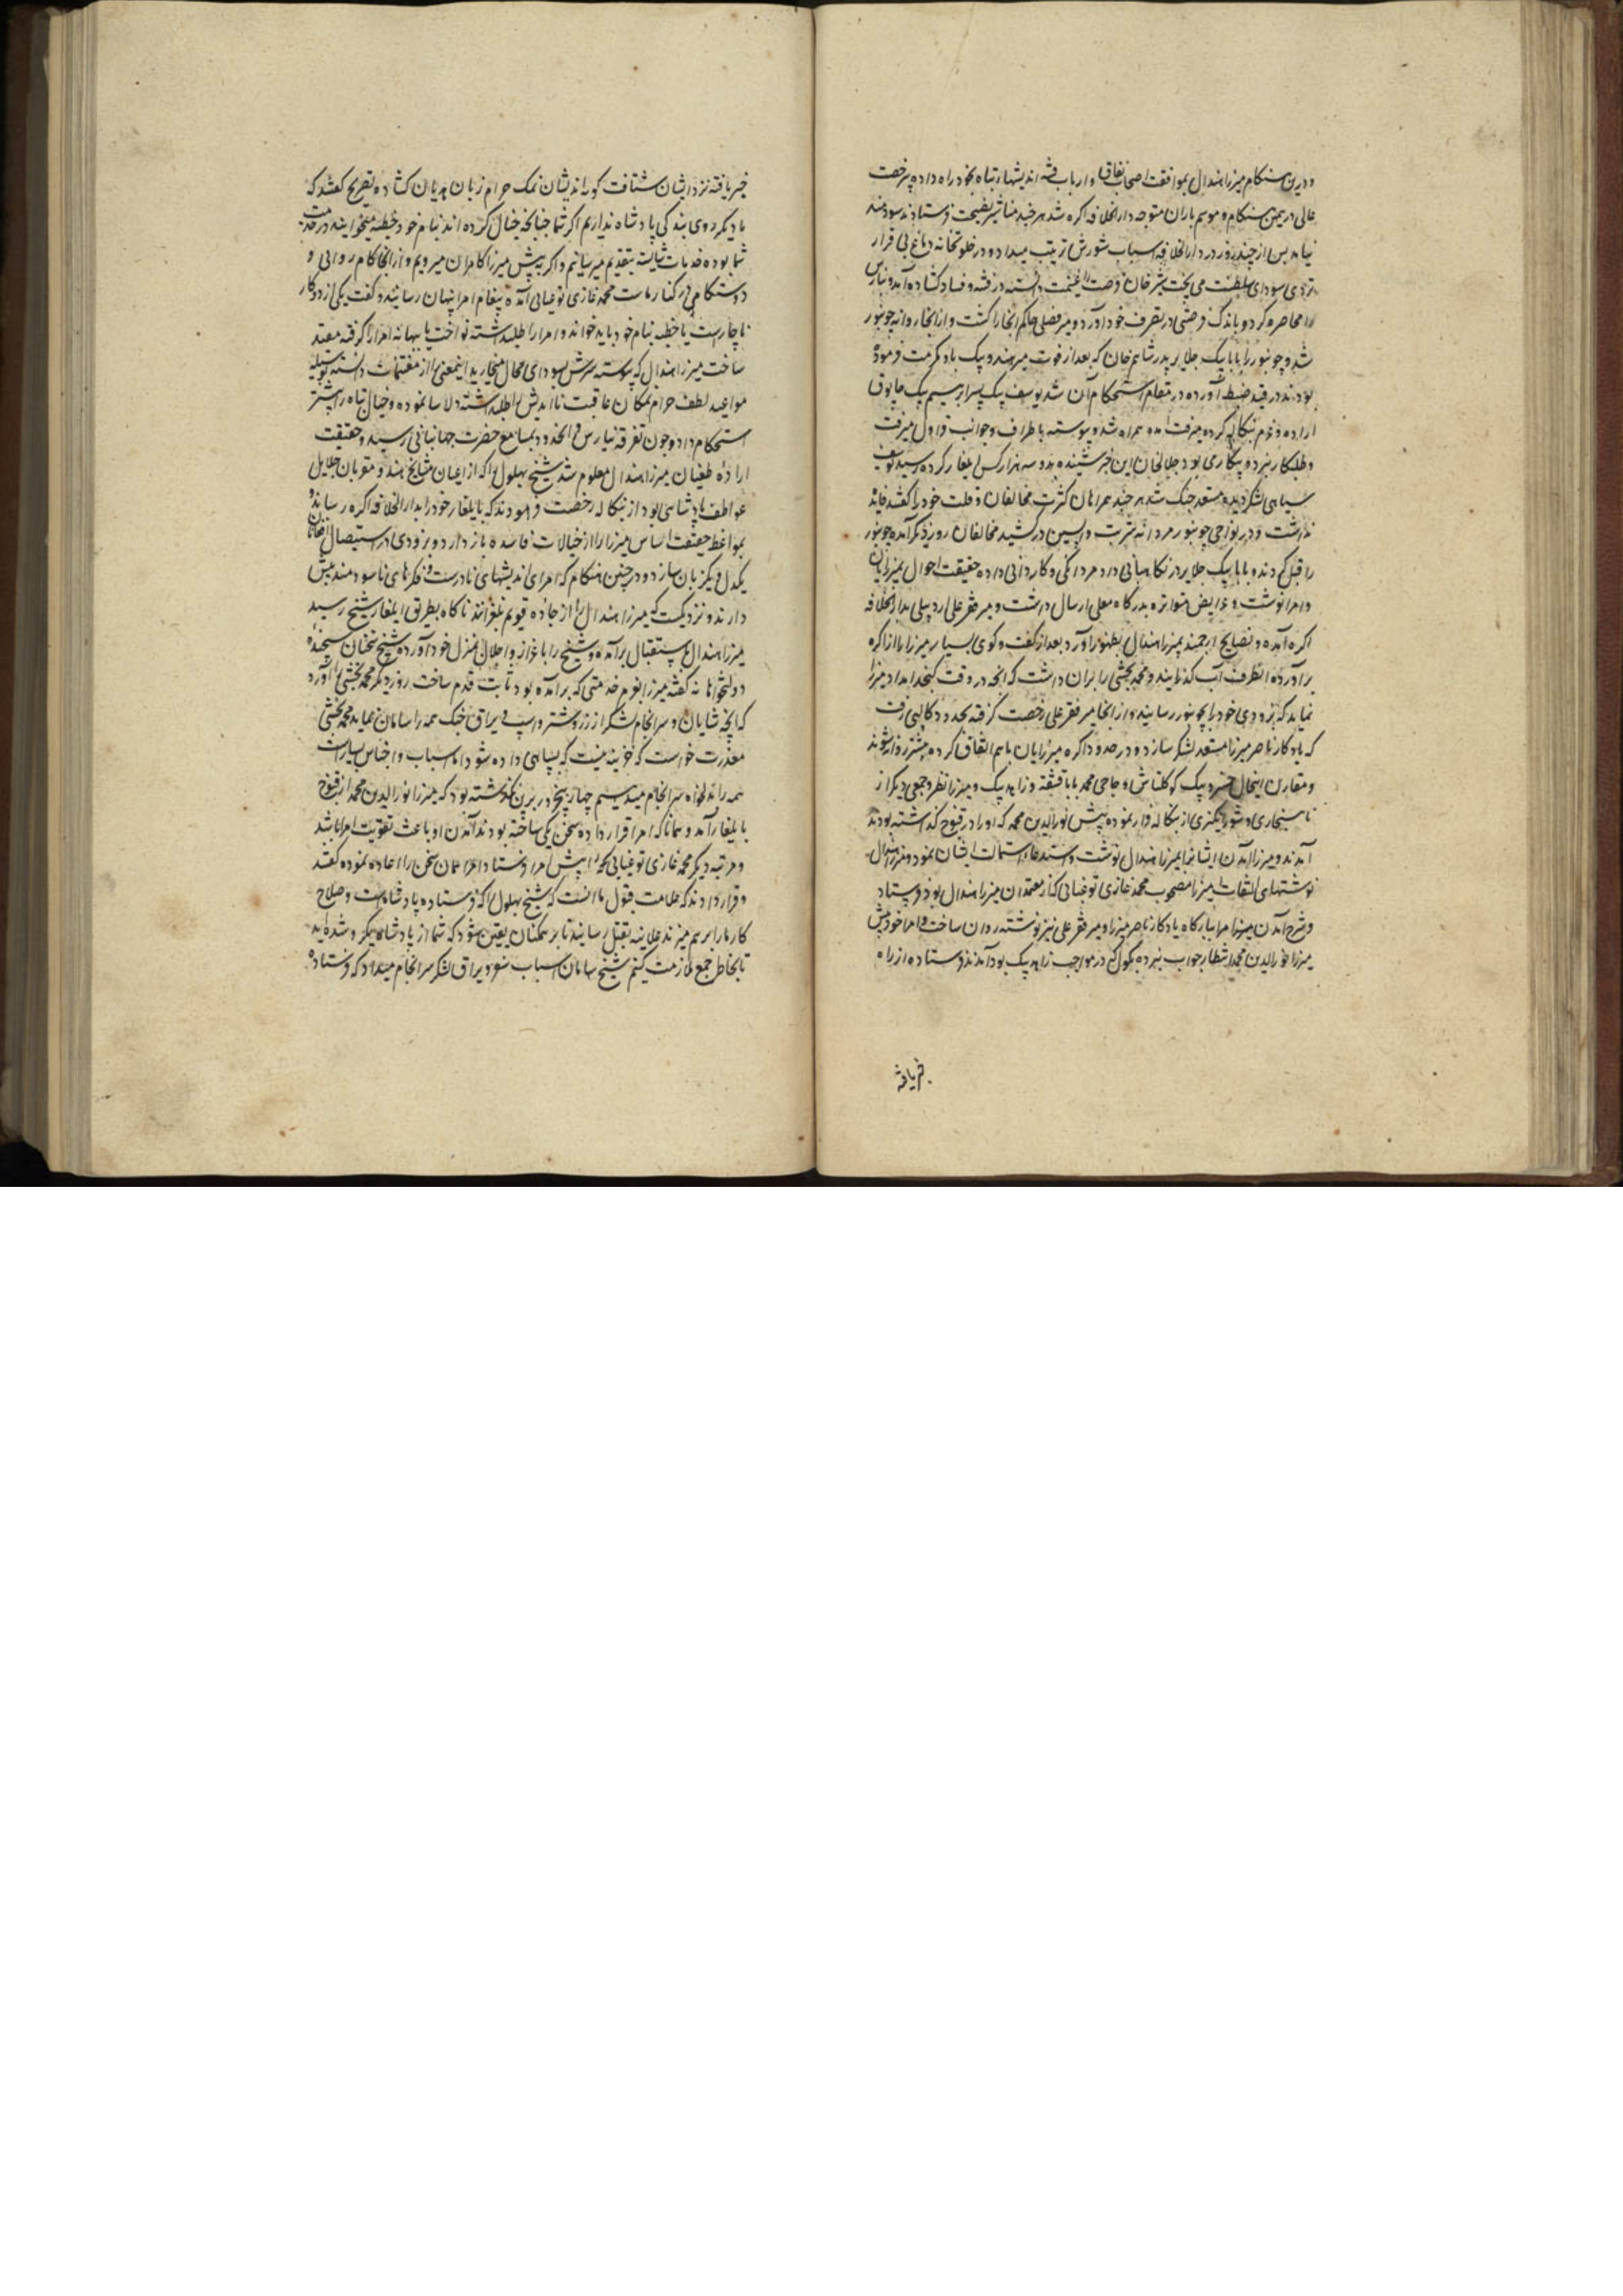 ودرین هنگام میرزا هندال بموافقت اصحاب نفاق و ارباب فتنه اندیشهای تباه بخود راه داده بی رخصت
عالی در عین هنگام و موسم باران متوجه دارالخلافه اکره شد هر چند مناشیر نصیحت فرستادند سودمند
نیامد پس از چند روز در دارالخلافه اسباب شورش ترتیب میداد و در خلوتخانه دماغ بی قرار
تردی سودای سلطنت می پخت شیرخان فرصت را غنیمت دانسته در فتنه و فساد کشاده آمد و بنارس
را محاصره کرد و باندک فرصتی در تصرف خود آورد و میر فضلی حاکم آنجا را کشت و از آنجا روانه جونپور
شد و جونپور را بابا بیک جلایر پدر شاهم خان که بعد از فوت میر هندو بیک باو مکرمت فرموده
بودند در قید ضبط آورده در مقام استحکام آن شد یوسف بیک پسر ابراهیم بیک چابوق
اراده و عزم بنکاله کرده میرفت آمده همراه شد و پیوسته باطراف و جوانب قراول میرفت
و طلبکار نبرد و پیکار می بود جلالخان این خبر شنیده بدو سه هزار کس ایلغار کرده رسید یوسف
سیاهی لشکر دیده مستعد جنک شد هر چند همراهان کثرت مخالفان و قلت خود را گفتند فایده
نداشت و در نواحی جونپور مردانه شربت واپسین درکشید مخالفان روز دیکر آمده جونپور
را قبل کردند و بابا بیک جلایر در نکاهبانی داد مردانکی و کاردانی داده حقیقت احوال بمیرزایان
و امرا نوشت و عرایض متواتره بدرکاه معلی ارسال داشت و میر فقر علی از دهلی بدارالخلافه
اکره آمده و نصایح ارجمند بمیرزا هندال بظهور آورد بعد از گفت و گوی بسیار میرزا را از اکره
برآورده آنطرف آب گذرانید و محمد بخشی را بران داشت که آنچه در وقت گنجد امداد میرزا
نماید که بزودی خود را بجونپور رساند و از آنجا میر فقر علی رخصت گرفته بحدود کالپی رفت
که یادکار ناصر میرزا مستعد لشکر سازد و در حدود اکره میرزایان باهم اتفاق کرده پیشتر روانه شوند
و مقارن اینحال خسرو بیک کوکلتاش و حاجی محمد بابا قشقه و زاهد بیک و میرزا نظر و جمعی دیکر از
ناسنجاری و شورانکیزی از بنکاله فرار نموده پیش نورالدین محمد که او را در قنوج گذاشته بودند
آمدند و میرزا آمدن ایشانرا بمیرزا هندال نوشت و استدعای استمالت ایشان نمود و میرزا هندال
نوشتهای التفات میرزا مصحوب محمد غازی توغبایی که از معتمدان میرزا هندال بود فرستاد
و شرح آمدن میرزا و امرا بیادکار ناصر میرزا و میر فقر علی نیز نوشته روان ساخت و امرا خود پیش
میرزا نورالدین محمد انتظار جواب نبرده بکول که در مواجب زاهد بیک بود آمدند فرستاده از راه
خبر یافته
خبر یافته نزد ایشان شتافت کوراندیشان نمک حرام زبان هذیان کشاده بتصریح گفتند که
ما دیکر روی بندکی پادشاه نداریم اکر شما چنانچه خیال کرده اند بنام خود خطبه میخوانید در خدمت
شما بوده خدمات شایسته بتقدیم میرسانیم و اکر نه پیش میرزا کامران میرویم و از آنجا کام روایی و
دوستکامی در کنار ماست محمد غازی توغبایی آمده پیغام امرا پنهان رسانید و گفت یکی از دو کار
ناچارست یا خطبه بنام خود باید خواند و امرا را طلب داشته نواخت یا ببهانه امرا را گرفته مقید
ساخت میرزا هندال که پیوسته سرش بسودای محال میخارید اینمعنی را از مغتنمات دانسته بوسیله
مواعید لطف حرام نمکان عاقبت نااندیش را طلب داشته دلاسا نموده و خیال تباه را بیشتر
استحکام داد و چون تفرقه بنارس و آنحدود بمسامع حضرت جهانبانی رسید و حقیقت
اراده طغیان میرزا هندال معلوم شد شیخ بهلول را که از اعیان مشایخ هند و مقربان جلایل
عواطف پادشاهی بود از بنکاله رخصت فرمودند که بایلغار خود را بدارالخلافه اکره رساند و
بمواعظ حقیقت اساس میرزا را از خیالات فاسده باز دارد و بزودی در استیصال افغانان
یکدل و یکزبان سازد و در چنین هنکام که امرای اندیشهای نادرست و فکرهای ناسودمند پیش
دارند و نزدیکست که میرزا هندال را از جاده قویم بلغزانند ناکاه بطریق ایلغار شیخ رسید
میرزا هندال باستقبال برآمده و شیخ را باعزاز و اجلال بمنزل خود آورد شیخ سخنان سنجیده
دولتخواهانه گفته میرزا بعزم خدمتی که برآمده بود ثابت قدم ساخت روز دیکر محمد بخشی را آورد
که آنچه شایان و سرانجام لشکر از زر و شتر و اسپ و یراق جنک همه را سامان نماید محمد بخشی
معذرت خواست که خزینه نیست که بسپاهی داده شود اما اسباب و اجناس بسیارست
همه را دلخواه سرانجام میدهیم چهار پنج روز برین نگذشته بود که میرزا نورالدین محمد از قنوج
بایلغار آمد و همانا که امرا قرار داده سخن یکی ساخته بودند آمدن او باعث تقویت امرا باشد
و مرتبه دیکر محمد غازی توغبایی را پیش امرا فرستاد و امرا همان سخن را اعاده نموده گفتند
و قرار دادند که علامت قبول ما آنست که شیخ بهلول را که فرستاده پادشاهست و صلاح
کار ما را برهم میزند علانیه بقتل رسانید تا بر همکنان یقین شود که شما از پادشاه یکرو شده اید
تا بخاطر جمع ملازمت کنیم شیخ سامان اسباب سفر و یراق لشکر سرانجام میداد که فرستاده